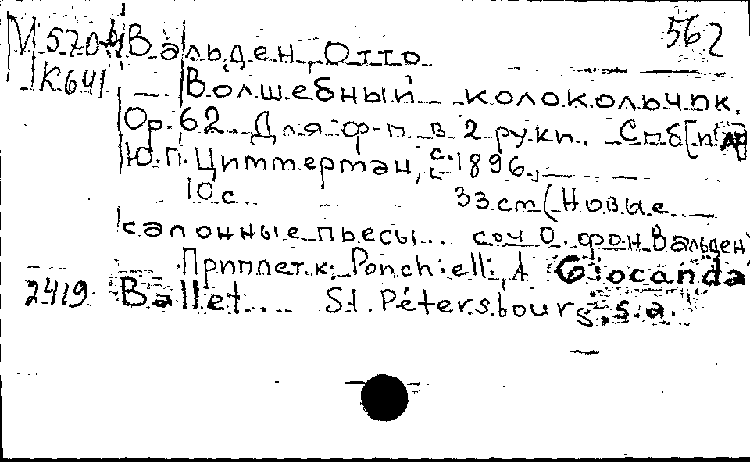 562
М 570-4 Вальден, Отто
К641 Волшебный колокольчик.
Op. 62. Для ф-п. в 2 руки. Спб
Ю.П. Циммерман, 1896.
10 с. 33 cm (Новые
салонные пьесы... соч О. фон Вальден
Приплет. к: Ponchielli, A Giocanda
2419 Ballet.... St. Pétersbourg, s.a.